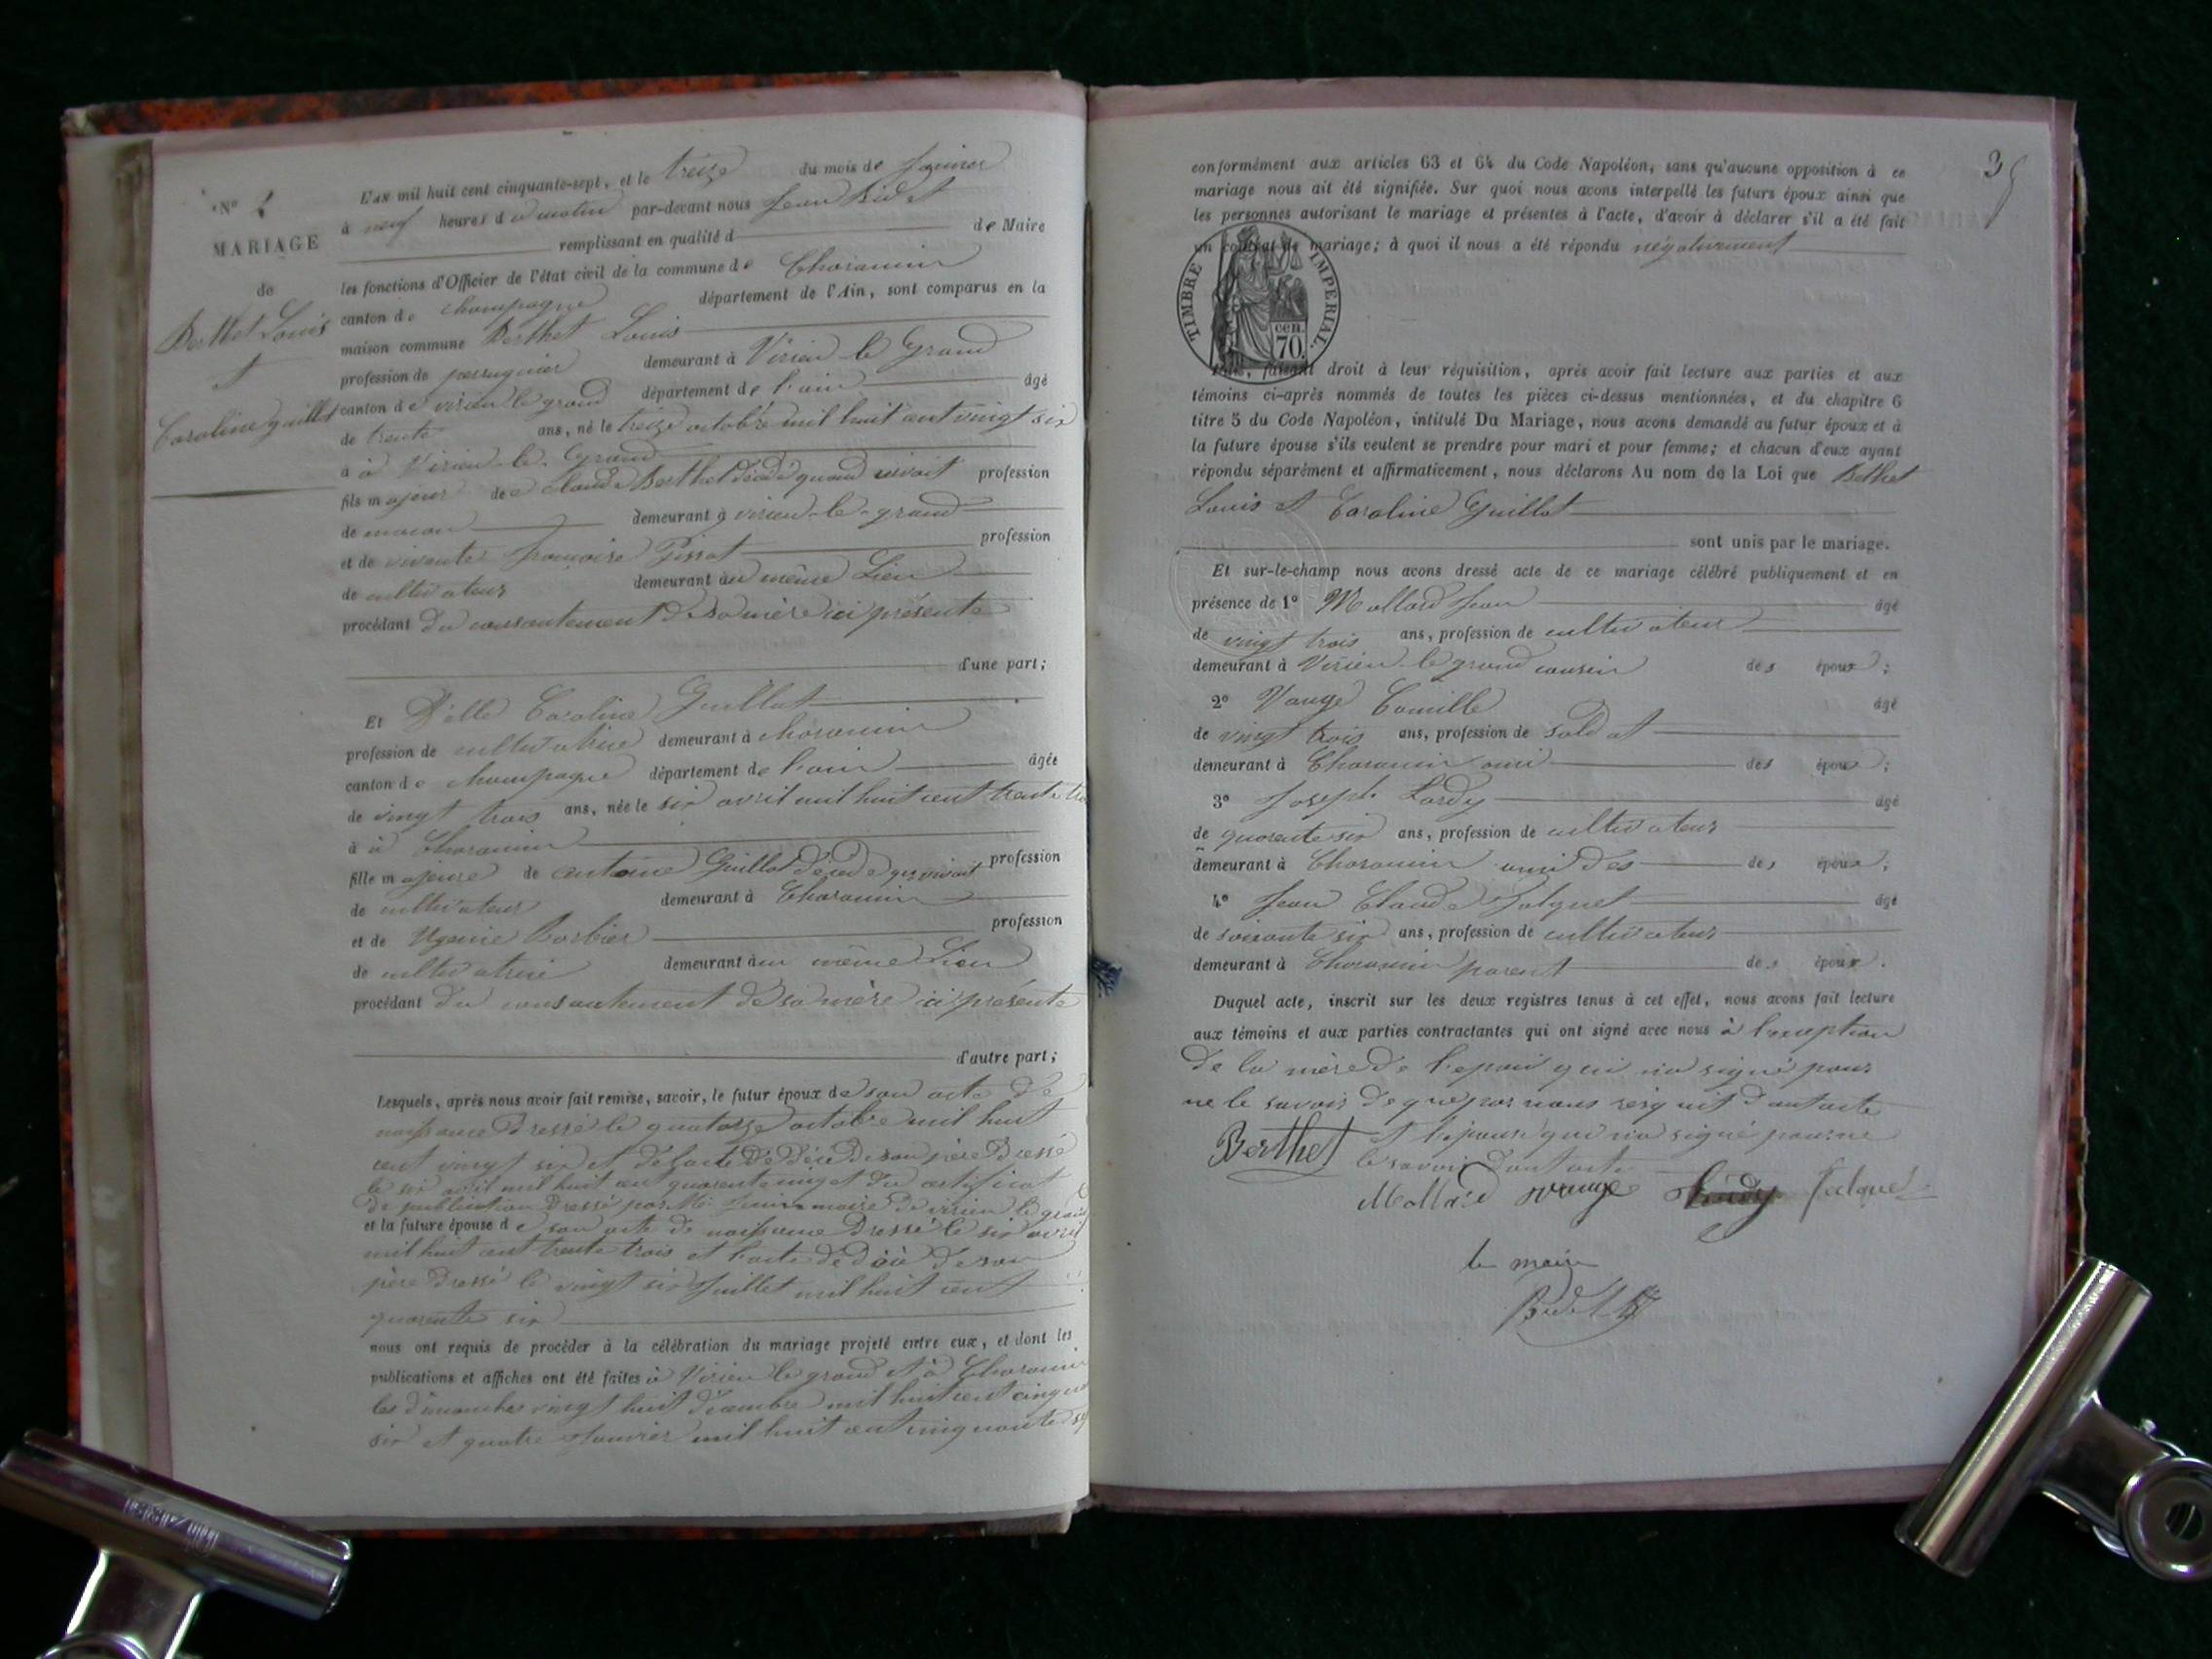 N° 1
MARIAGE
de
Berthet Louis
et
Caroline Guillot
L'an mil huit cent cinquante-sept, et le treize du mois de Janvier
à neuf heures du matin par-devant nous Jean Bidet
remplissant en qualité d de Maire
les fonctions d'Officier de l'état civil de la commune de Choranin
canton de champagne département de l'Ain, sont comparus en la
maison commune Berthet Louis
profession de perruquier demeurant à Virieu-le-Grand
canton de virieu le grand département de l'ain âgé
de trente ans, né le treize octobre mil huit cent vingt six
à à Virieu-le-Grand
fils majeur de Claude Berthet décédé quand vivait profession
de macon demeurant à virieu-le-grand
et de vivante francoise Pissot profession
de cultivateur demeurant au même Lieu
procédant du consentement de sa mère ici présente
d'une part;
Et Delle Caroline Guillot
profession de cultivatrice demeurant à choranin
canton de champagne département de l'ain âgée
de vingt trois ans, née le six avril mil huit cent trente
à à Choranin
fille majeure de antoine Guillot décédé vivait profession
de cultivateur demeurant à Choranin
et de Ugenie Barbier profession
de cultivatrice demeurant au même Lieu
procédant du consentement de sa mère ici présente
d'autre part;
Lesquels, après nous avoir fait remise, savoir, le futur époux de son acte de
naissance dressé le quatorze octobre mil huit
cent vingt six et de l'acte de décé de son père Dressé
le six avril mil huit cent quarente et du certificat
de publication dressé par Mr maire de virieu le grand
et la future épouse de son acte de naissance Dressé le six avril
mil huit cent trente trois et l'acte de décé de son
père dressé le vingt six Juillet mil huit cent
quarente six
nous ont requis de procéder à la célébration du mariage projeté entre eux, et dont les
publications et affiches ont été faites à Virieu le grand et à Choranin
les dimanches vingt huit décembre mil huit cent cinqua
six et quatre Janvier mil huit cent cinquante sep
35
conformément aux articles 63 et 64 du Code Napoléon, sans qu'aucune opposition à ce
mariage nous ait été signifiée. Sur quoi nous avons interpellé les futurs époux ainsi que
les personnes autorisant le mariage et présentes à l'acte, d'avoir à déclarer s'il a été fait
un contrat de mariage; à quoi il nous a été répondu négativement
TIMBRE IMPERIAL.
cen.
70.
faisant droit à leur réquisition, après avoir fait lecture aux parties et aux
témoins ci-après nommés de toutes les pièces ci-dessus mentionnées, et du chapitre 6
titre 5 du Code Napoléon, intitulé Du Mariage, nous avons demandé au futur époux et à
la future épouse s'ils veulent se prendre pour mari et pour femme; et chacun d'eux ayant
répondu séparément et affirmativement, nous déclarons Au nom de la Loi que Bethet
Louis et Caroline Guillot
sont unis par le mariage.
Et sur-le-champ nous avons dressé acte de ce mariage célébré publiquement et en
présence de 1° Mollard Jean âgé
de vingt trois ans, profession de cultivateur
demeurant à Virieu-le grand cousin des époux;
2° Vouge Camille âgé
de vingt trois ans, profession de soldat
demeurant à Choranin ami des époux;
3° Joseph Lardy âgé
de quarente six ans, profession de cultivateur
demeurant à Choranin ami des des époux;
4° Jean Claude Jalquet âgé
de soixante six ans, profession de cultivateur
demeurant à Choranin parent des époux.
Duquel acte, inscrit sur les deux registres tenus à cet effet, nous avons fait lecture
aux témoins et aux parties contractantes qui ont signé avec nous à l'exception
de la mère de l'epoux qui na signé pour
ne le savoir de que par nous requit dont acte
Berthet et l'épouse qui na signé pour ne
le savoir dont acte
Mollard vouge Lardy Jalquet
le maire
Bidet